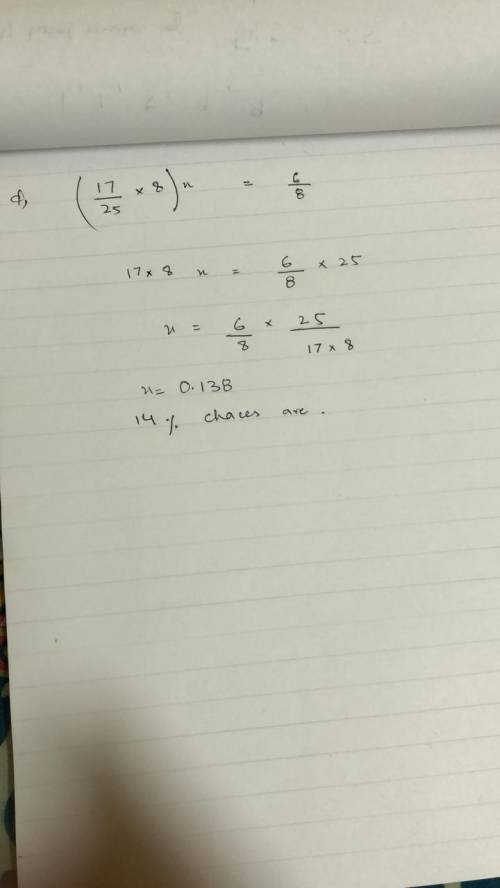 d, (17/25 × 8) x = 6/8
17 × 8 x = 6/8 × 25
x = 6/8 × 25/17 × 8
x = 0.138
14 % chaces are .